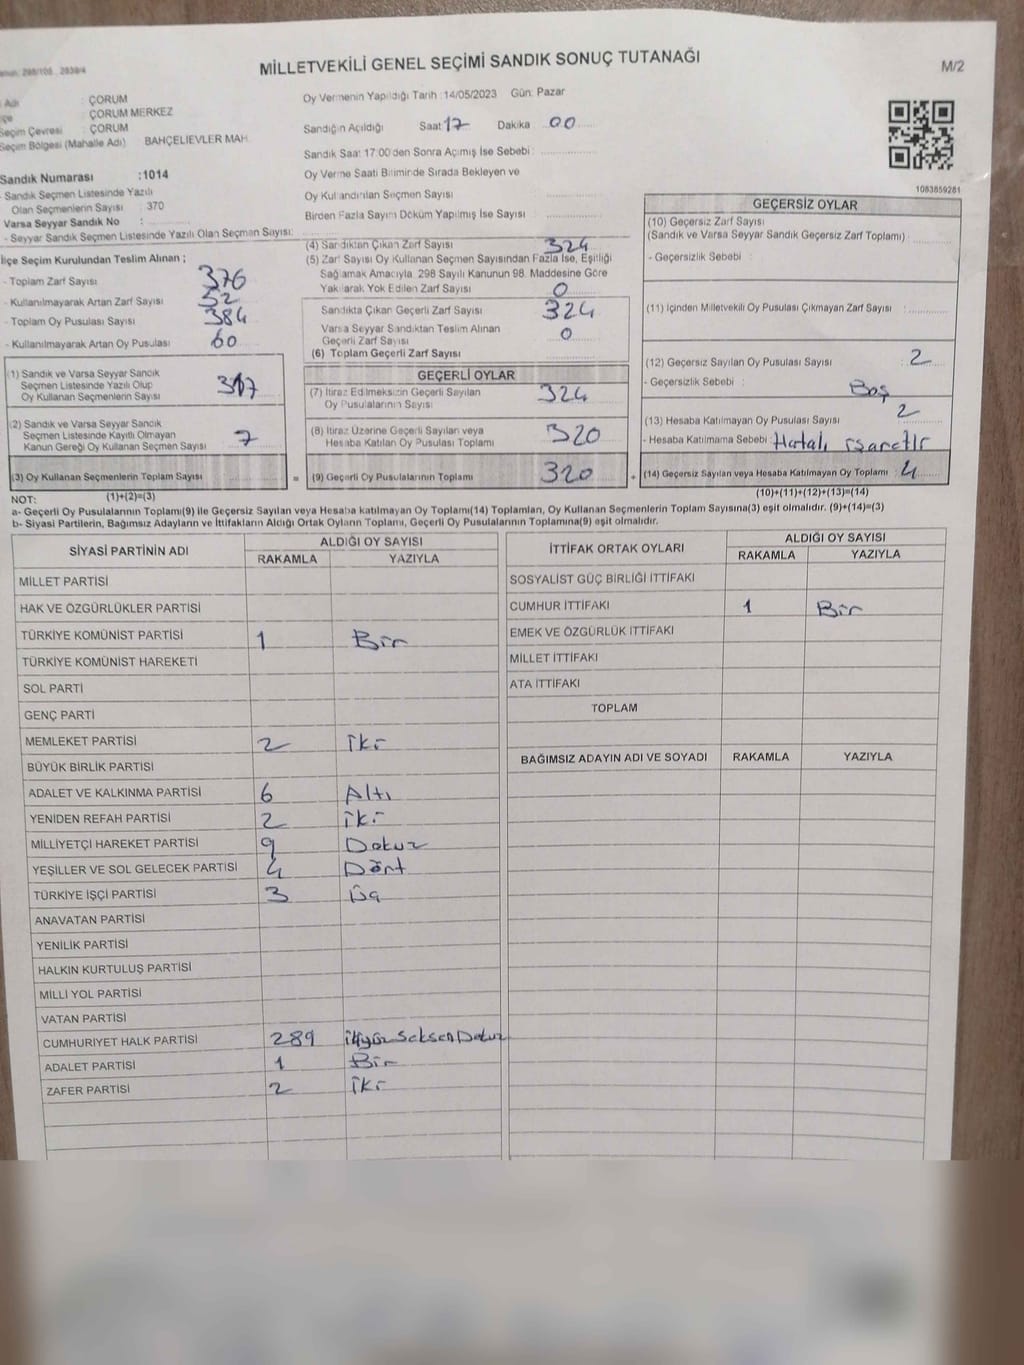 MİLLETVEKİLİ GENEL SEÇİMİ SANDIK SONUÇ TUTANAĞI
M/2
Adı : ÇORUM
: ÇORUM MERKEZ
Seçim Çevresi : ÇORUM
Seçim Bölgesi (Mahalle Adı) BAHÇELİEVLER MAH
Sandık Numarası :1014
- Sandık Seçmen Listesinde Yazılı
Olan Seçmenlerin Sayısı : 370
Varsa Seyyar Sandık No :
- Seyyar Sandık Seçmen Listesinde Yazılı Olan Seçmen Sayısı:
İlçe Seçim Kurulundan Teslim Alınan ;
- Toplam Zarf Sayısı 376
- Kullanılmayarak Artan Zarf Sayısı 52
- Toplam Oy Pusulası Sayısı 384
- Kullanılmayarak Artan Oy Pusulası 60
(1) Sandık ve Varsa Seyyar Sandık
Seçmen Listesinde Yazılı Olup
Oy Kullanan Seçmenlerin Sayısı 317
(2) Sandık ve Varsa Seyyar Sandık
Seçmen Listesinde Kayıtlı Olmayan
Kanun Gereği Oy Kullanan Seçmen Sayısı 7
(3) Oy Kullanan Seçmenlerin Toplam Sayısı
Oy Vermenin Yapıldığı Tarih :14/05/2023 Gün: Pazar
Sandığın Açıldığı Saat 17 Dakika 00
Sandık Saat 17:00'den Sonra Açılmış İse Sebebi :
Oy Verme Saati Bitiminde Sırada Bekleyen ve
Oy Kullandırılan Seçmen Sayısı :
Birden Fazla Sayım Döküm Yapılmış İse Sayısı :
(4) Sandıktan Çıkan Zarf Sayısı 324
(5) Zarf Sayısı Oy Kullanan Seçmen Sayısından Fazla İse, Eşitliği
Sağlamak Amacıyla, 298 Sayılı Kanunun 98. Maddesine Göre
Yakılarak Yok Edilen Zarf Sayısı 0
Sandıkta Çıkan Geçerli Zarf Sayısı 324
Varsa Seyyar Sandıktan Teslim Alınan
Geçerli Zarf Sayısı 0
(6) Toplam Geçerli Zarf Sayısı
GEÇERLİ OYLAR
(7) İtiraz Edilmeksizin Geçerli Sayılan
Oy Pusulalarının Sayısı 324
(8) İtiraz Üzerine Geçerli Sayılan veya
Hesaba Katılan Oy Pusulası Toplamı 320
= (9) Geçerli Oy Pusulalarının Toplamı 320 +
1083859281
GEÇERSİZ OYLAR
(10) Geçersiz Zarf Sayısı
(Sandık ve Varsa Seyyar Sandık Geçersiz Zarf Toplamı) :
- Geçersizlik Sebebi :
(11) İçinden Milletvekili Oy Pusulası Çıkmayan Zarf Sayısı :
(12) Geçersiz Sayılan Oy Pusulası Sayısı : 2
- Geçersizlik Sebebi : Boş
(13) Hesaba Katılmayan Oy Pusulası Sayısı : 2
- Hesaba Katılmama Sebebi : Hatalı işaretlr
(14) Geçersiz Sayılan veya Hesaba Katılmayan Oy Toplamı : 4
NOT: (1)+(2)=(3) (10)+(11)+(12)+(13)=(14)
a- Geçerli Oy Pusulalarının Toplamı(9) ile Geçersiz Sayılan veya Hesaba katılmayan Oy Toplamı(14) Toplamları, Oy Kullanan Seçmenlerin Toplam Sayısına(3) eşit olmalıdır. (9)+(14)=(3)
b- Siyasi Partilerin, Bağımsız Adayların ve İttifakların Aldığı Ortak Oyların Toplamı, Geçerli Oy Pusulalarının Toplamına(9) eşit olmalıdır.
SİYASİ PARTİNİN ADI ALDIĞI OY SAYISI
RAKAMLA YAZIYLA
MİLLET PARTİSİ
HAK VE ÖZGÜRLÜKLER PARTİSİ
TÜRKİYE KOMÜNİST PARTİSİ 1 Bir
TÜRKİYE KOMÜNİST HAREKETİ
SOL PARTİ
GENÇ PARTİ
MEMLEKET PARTİSİ 2 iki
BÜYÜK BİRLİK PARTİSİ
ADALET VE KALKINMA PARTİSİ 6 Altı
YENİDEN REFAH PARTİSİ 2 iki
MİLLİYETÇİ HAREKET PARTİSİ 9 Dokuz
YEŞİLLER VE SOL GELECEK PARTİSİ 4 Dört
TÜRKİYE İŞÇİ PARTİSİ 3 Üç
ANAVATAN PARTİSİ
YENİLİK PARTİSİ
HALKIN KURTULUŞ PARTİSİ
MİLLİ YOL PARTİSİ
VATAN PARTİSİ
CUMHURİYET HALK PARTİSİ 289 ikiyüz Seksen Dokuz
ADALET PARTİSİ 1 Bir
ZAFER PARTİSİ 2 iki
İTTİFAK ORTAK OYLARI ALDIĞI OY SAYISI
RAKAMLA YAZIYLA
SOSYALİST GÜÇ BİRLİĞİ İTTİFAKI
CUMHUR İTTİFAKI 1 Bir
EMEK VE ÖZGÜRLÜK İTTİFAKI
MİLLET İTTİFAKI
ATA İTTİFAKI
TOPLAM
BAĞIMSIZ ADAYIN ADI VE SOYADI RAKAMLA YAZIYLA